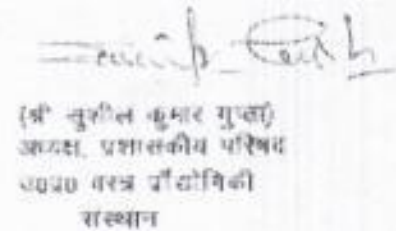 (श्री सुशील कुमार गुप्ता)
अध्यक्ष, प्रशासकीय परिषद
उ०प्र० वस्त्र प्रौद्योगिकी
संस्थान